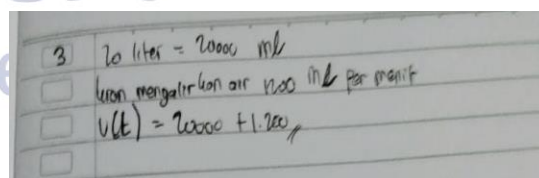 3 20 liter = 20000 ml
kran mengalirkan air 1200 ml per menit
V(t) = 20000 + 1.200